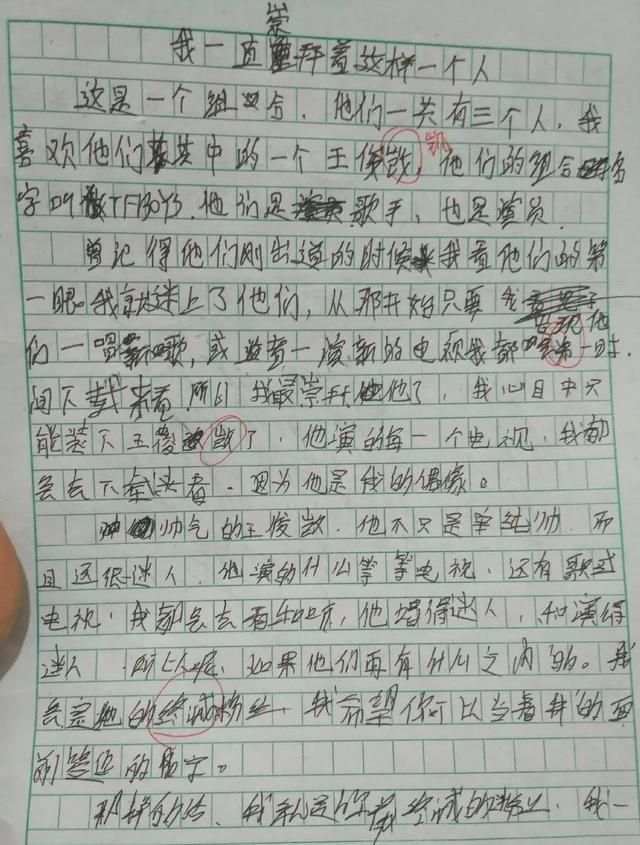 崇
我一直拜着这样一个人
这是一个组合，他们一共有三个人，我
凯
喜欢他们其中的一个王俊，他们的组合名
字叫做TFBOYS，他们是歌手，也是演员
曾记得他们刚出道的时候我看他们的第
一眼。我就迷上了他们，从那开始只要我
他
们一唱新歌，或者一演新的电视我都会第一时
间下载来看，所以我最崇拜他了，我心目中只
能装下王俊了，他演的每一个电视，我都
会去下看，因为他是我的偶像。
帅气的王俊，他不只是单纯帅，而
且还很迷人，他演的什么等等电视，还有
电视，我都会去看，他唱得迷人，和演得
迷人，所以呢，如果他们再有什么之内的。我
会是他的粉丝，我希望你可以当着我的面
前签的名字。
的话，我就是你的粉丝，我一